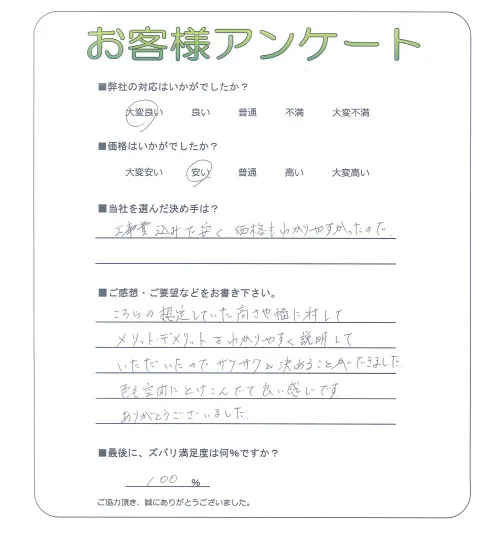 お客様アンケート
■弊社の対応はいかがでしたか？
大変良い 良い 普通 不満 大変不満
■価格はいかがでしたか？
大変安い 安い 普通 高い 大変高い
■当社を選んだ決め手は？
工事費込みで安く価格もわかりやすかったので.
■ご感想・ご要望などをお書き下さい。
こちらの想定していた高さや幅に対して
メリット・デメリットをわかりやすく説明して
いただいたのでサクサクと決めることができました.
色も空間にとけこんでて良い感じです.
ありがとうございました.
■最後に、ズバリ満足度は何%ですか？
100 %
ご協力頂き、誠にありがとうございました。